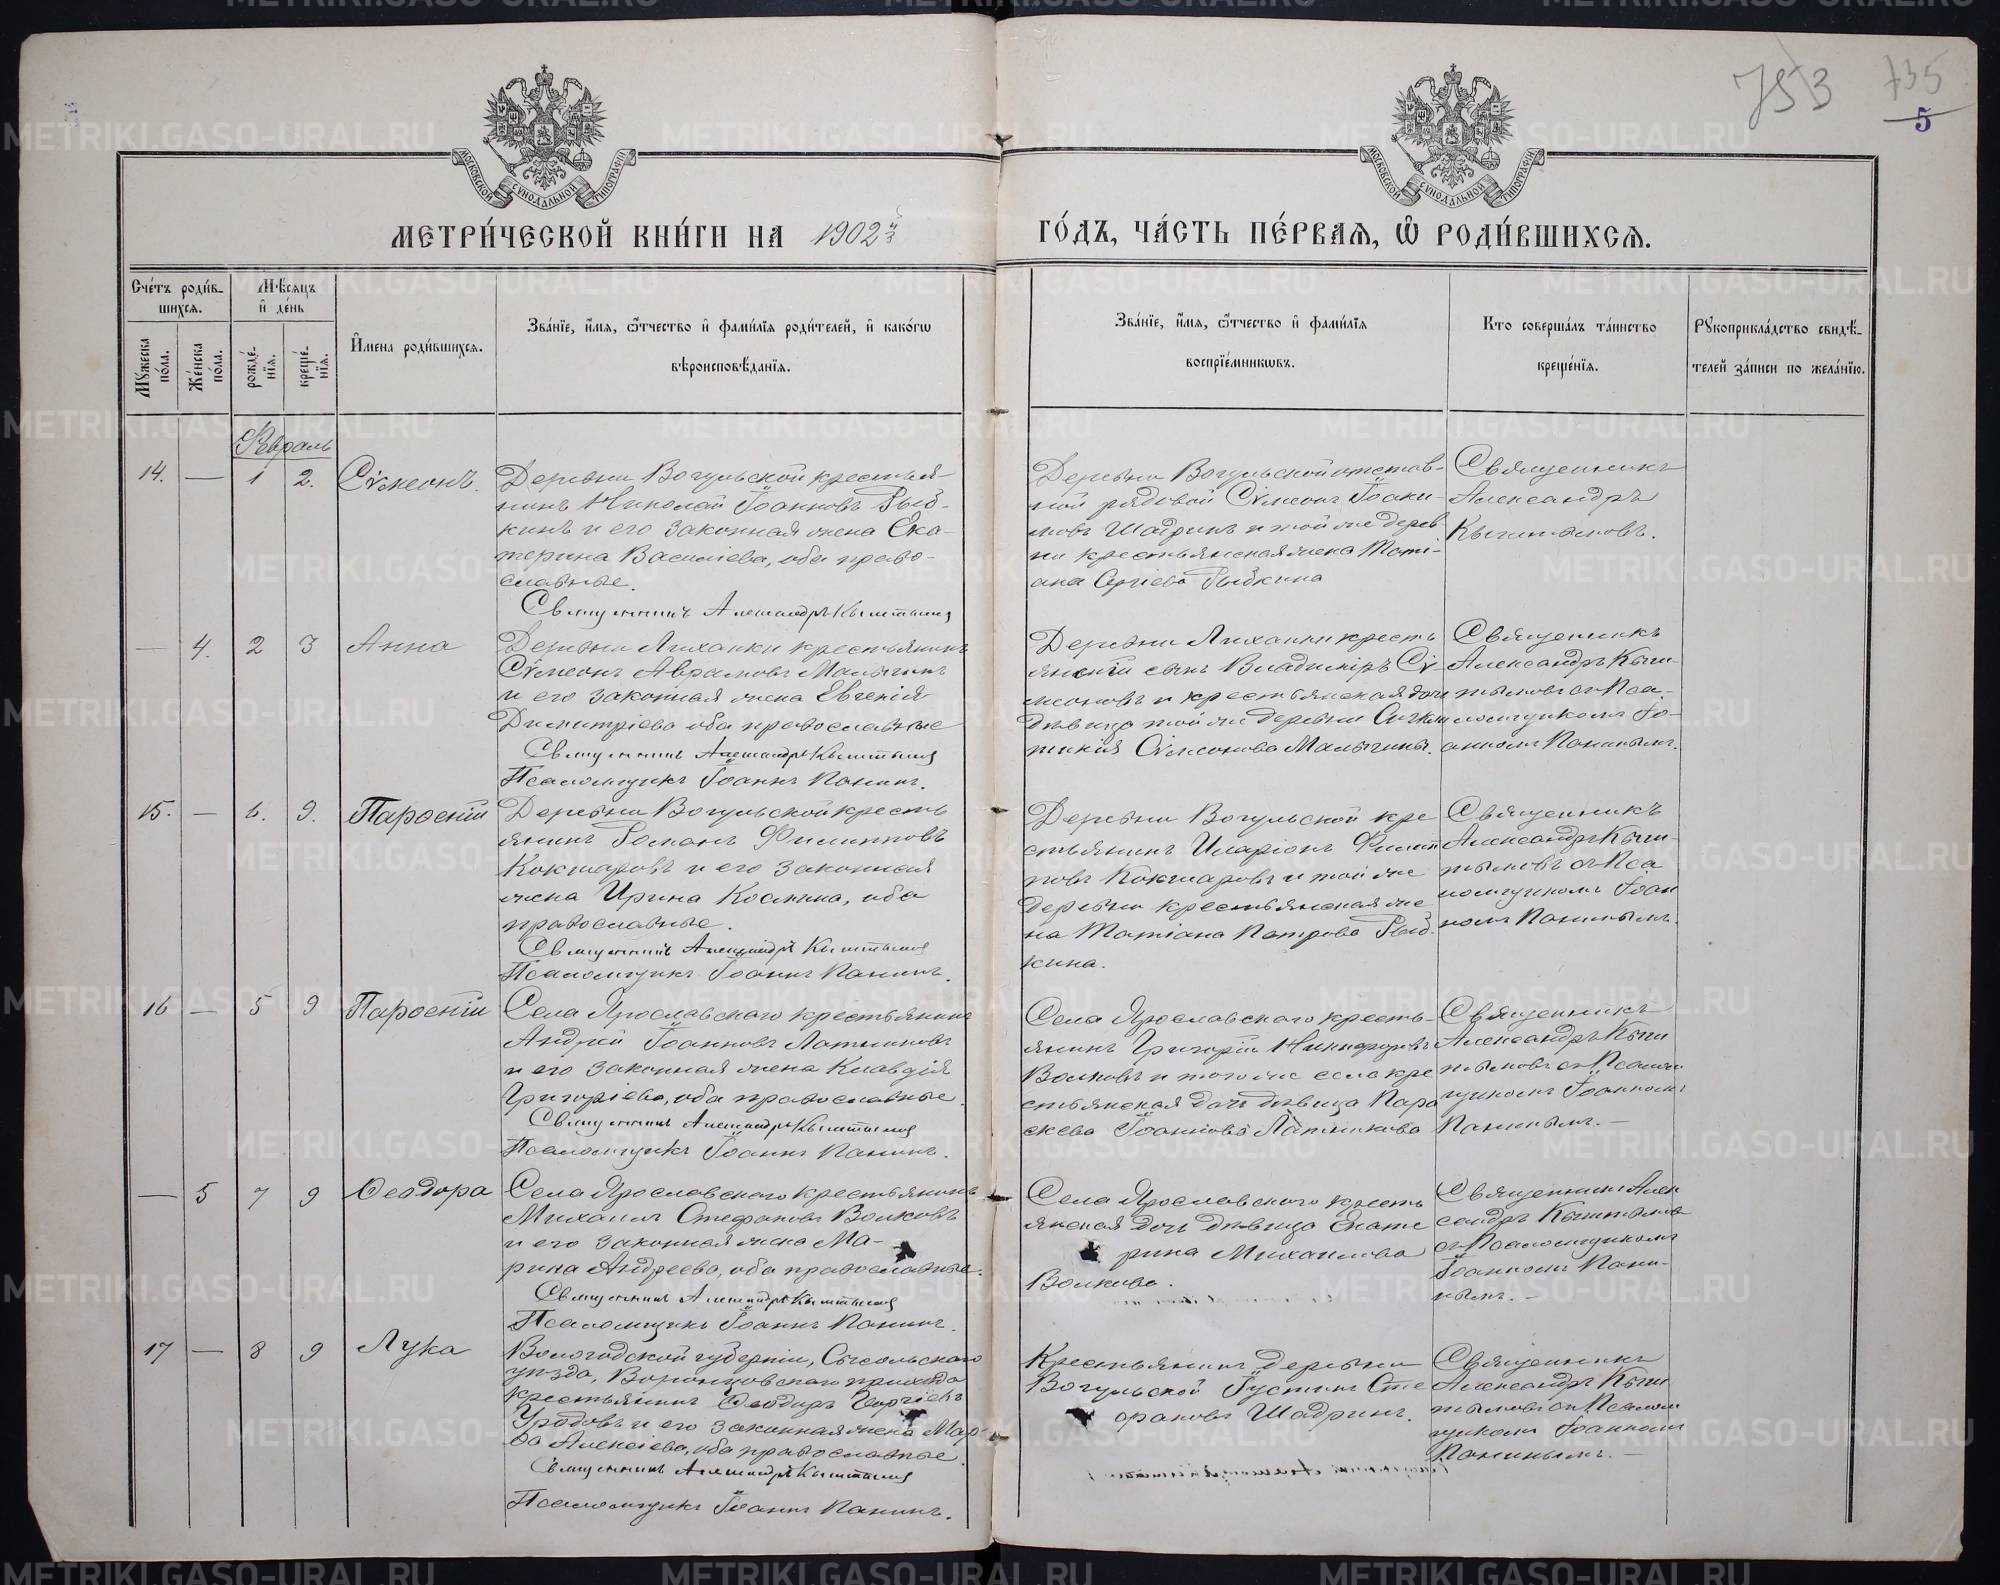 753
735
5
МОСКОВСКОЙ СѴНОДАЛЬНОЙ ТИПОГРАФІИ
МОСКОВСКОЙ СѴНОДАЛЬНОЙ ТИПОГРАФІИ
МЕТРИ́ЧЕСКОЙ КНИ́ГИ НА 1902й
ГО́ДЪ, ЧА́СТЬ ПЕ́РВАѦ, Ѡ РОДИ́ВШИХСѦ.
Сче́тъ роди́в-
шихсѧ.
Мꙋ́жеска по́ла.
Же́нска по́ла.
Мѣ́сѧцъ
и҆ де́нь
рожде́-нїѧ.
креще́-нїѧ.
И҆мена роди́вшихсѧ.
Зва́нїе, и҆́мѧ, ѻ҆́тчество и҆ фами́лїѧ роди́телей, и҆ како́гѡ
вѣроисповѣ́данїѧ.
Зва́нїе, и҆́мѧ, ѻ҆́тчество и҆ фами́лїѧ
воспрїе́мникѡвъ.
Кто соверша́лъ та́инство
креще́нїѧ.
Рꙋкоприкла́дство свидѣ́-
телей за́писи по жела́нїю.
Февраль
14. — 1 2. Сѵмеонъ.
Деревни Вогульской крестья-
нинъ Николай Іоанновъ Рыб-
кинъ и его законная жена Ека-
терина Васильева, оба право-
славные.
Священникъ Александръ Кыштымовъ
Деревни Вогульской отстав-
ной рядовой Сѵмеонъ Іоаки-
мовъ Шадринъ и той же дерев-
ни крестьянская жена Тати-
ана Сергіева Рыбкина
Священникъ
Александръ
Кыштымовъ.
— 4. 2 3 Анна
Деревни Ляханки крестьянинъ
Сѵмеонъ Аврамовъ Малыгинъ
и его законная жена Евгенія
Димитріева оба православные
Священникъ Александръ Кыштымовъ
Псаломщикъ Іоаннъ Панинъ.
Деревни Ляханки кресть
янскій сынъ Владиміръ Сѵ-
меоновъ и крестьянская дочь
дѣвица той же деревни
Сѵмеонова Малыгины.
Священникъ
Александръ Кыш-
тымовъ съ Пса-
ломщикомъ Іо-
анномъ Панинымъ.
15. — 6. 9. Парѳеній
Деревни Вогульской кресть
янинъ Романъ Филипповъ
Кокшаровъ и его законная
жена Ирина Козмина, оба
православные.
Священникъ Александръ Кыштымовъ
Псаломщикъ Іоаннъ Панинъ.
Деревни Вогульской кре
стьянинъ Иларіонъ Филип
повъ Кокшаровъ и той же
деревни крестьянская же
на Татіана Петрова Рыб
кина.
Священникъ
Александръ Кыш-
тымовъ съ Пса
ломщикомъ Іоан
номъ Панинымъ.
16 — 5 9 Парѳеній
Села Ярославскаго крестьянинъ
Андрей Іоанновъ Латниковъ
и его законная жена Клавдія
Григоріева, оба православные.
Священникъ Александръ Кыштымовъ
Псаломщикъ Іоаннъ Панинъ.
Села Ярославскаго кресть-
янинъ Григорій Никифоровъ
Волковъ и того же села кре
стьянская дочь дѣвица Пара
скева Іоаннова Латникова
Священникъ
Александръ Кыш
тымовъ съ Псалом
щикомъ Іоанномъ
Панинымъ. —
— 5 7 9 Ѳеодора
Села Ярославскаго крестьянинъ
Михаилъ Стефановъ Волковъ
и его законная жена Ма-
рина Андреева, оба православные.
Священникъ Александръ Кыштымовъ
Псаломщикъ Іоаннъ Панинъ.
Села Ярославскаго кресть
янская дочь дѣвица Екате
рина Михаилова
Волкова.
Священникъ Алек
сандръ Кыштымовъ
съ Псаломщикомъ
Іоанномъ Пани-
нымъ. —
17 — 8 9 Лука
Вологодской губерніи, Сысольскаго
уѣзда, Воронцовскаго прихода
крестьянинъ Ѳеодоръ Георгіевъ
Уродовъ и его законная жена Мар-
ѳа Алексіева, оба православные.
Священникъ Александръ Кыштымовъ
Псаломщикъ Іоаннъ Панинъ.
Крестьянинъ деревни
Вогульской Іустинъ Сте
фановъ Шадринъ.
Священникъ
Александръ Кыш
тымовъ съ Псалом
щикомъ Іоанномъ
Панинымъ. —
METRIKI.GASO-URAL.RU